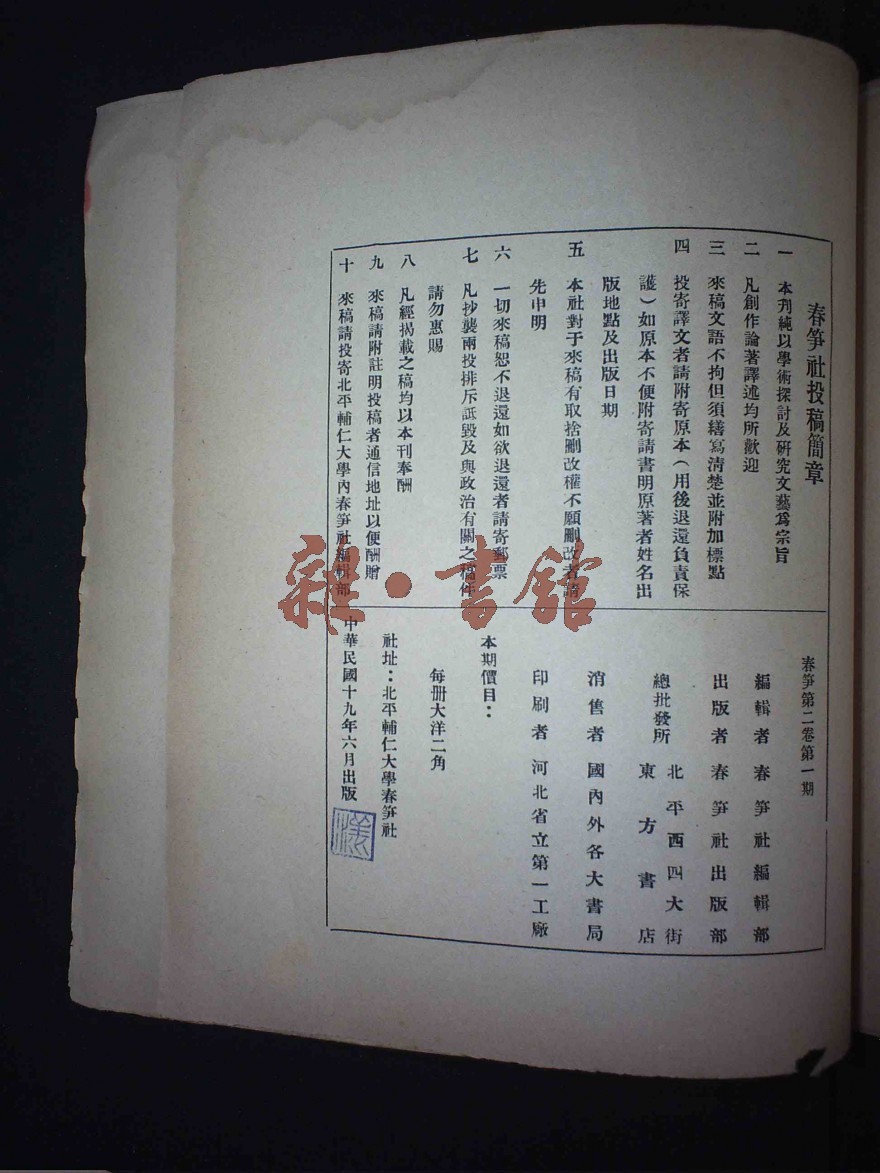 春筍社投稿簡章
一 本刋純以學術探討及硏究文藝爲宗旨
二 凡創作論著譯述均所歡迎
三 來稿文語不拘但須繕寫清楚並附加標點
四 投寄譯文者請附寄原本（用後退還負責保
護）如原本不便附寄請書明原著者姓名出
版地點及出版日期
五 本社對于來稿有取捨刪改權不願刪改者請
先申明
六 一切來稿恕不退還如欲退還者請寄郵票
七 凡抄襲兩投排斥詆毀及與政治有關之稿件
請勿惠賜
八 凡經揭載之稿均以本刊奉酬
九 來稿請附註明投稿者通信地址以便酬贈
十 來稿請投寄北平輔仁大學內春筍社編輯部
春筍第二卷第一期
編輯者 春筍社編輯部
出版者 春筍社出版部
總批發所 北平西四大街
東方書店
消售者 國內外各大書局
印刷者 河北省立第一工廠
本期價目：
每册大洋二角
社址：北平輔仁大學春筍社
中華民國十九年六月出版
雜·書館